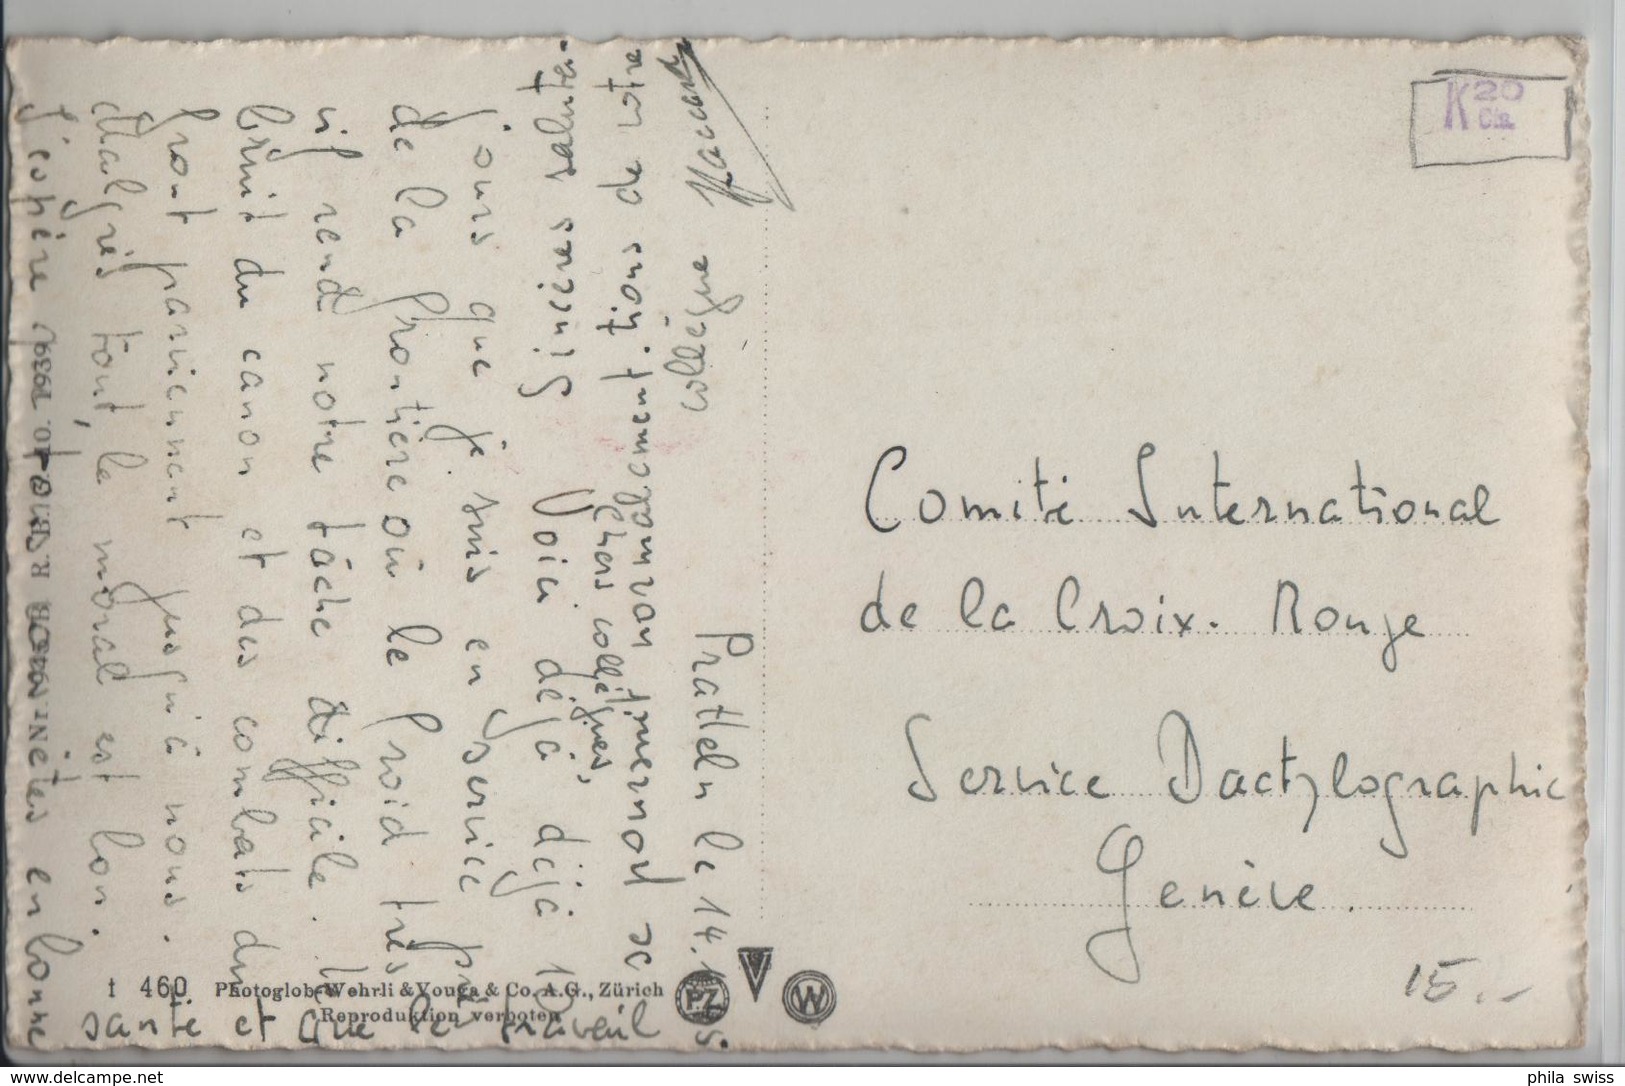 Pratteln le 14.
Chers collègues,
Voici déjà déjà 12
jours que je suis en service près
de la frontière où le froid très
vif rend notre tâche difficile. Le
bruit du canon et des combats du
front parviennent jusqu'à nous.
Malgrès tout, le moral est bon.
J'espère que vous êtes en bonne
santé et que le travail
se poursuit normalement.
Sincères saluta-
tions de votre
collègue
K 20 Cts.
Comité International
de la Croix-Rouge
Service Dactylographie
Genève.
15.-
t 460. Photoglob-Wehrli & Vouga & Co. A.G., Zürich
Reproduktion verboten
PZ
V
W
www.delcampe.net
phila swiss